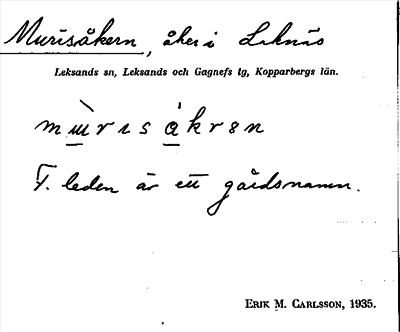 Murisåkern, åker i Laknäs
Leksands sn, Leksands och Gagnefs tg, Kopparbergs län.
F. leden är ett gårdsnamn.
ERIK M. CARLSSON, 1935.